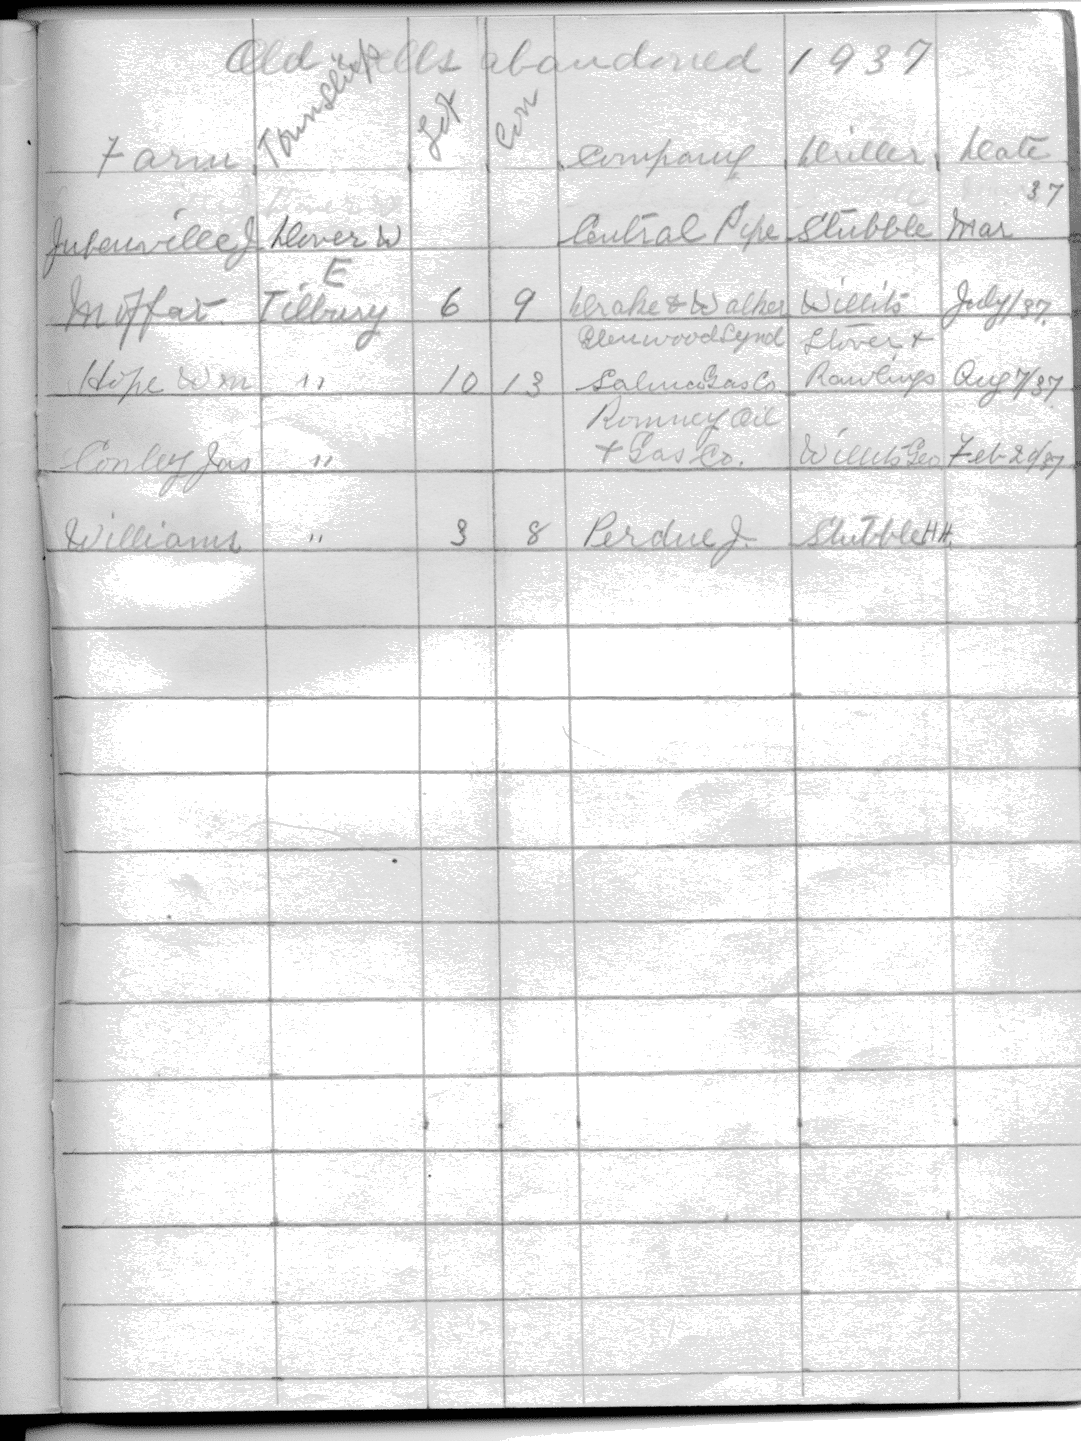 Old wells abandoned 1937
Farm Township Lot Con Company Driller Date
37
Jubenville J. Dover W Central Pipe Stubble Mar
E
Moffat Tilbury 6 9 Drake & Walker Willits July/37.
Glenwood Synd Stover +
Hope Wm " 10 13 Salina Gas Co Rawlings Aug 7/37
Romney Oil
Conley Jas " + Gas Co. Willits Geo Feb 20/37
Williams " 3 8 Perdue J. Stubble H H.